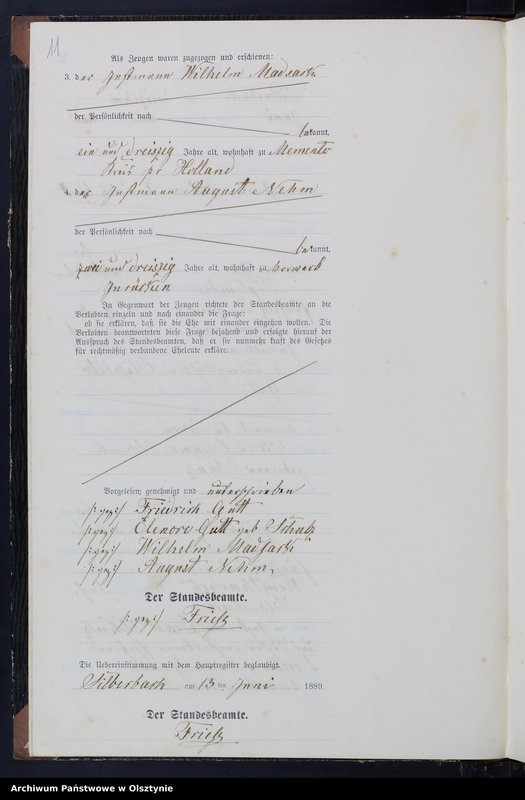 11
Als Zeugen waren zugezogen und erschienen:
3. der Instmann Wilhelm Madsack
der Persönlichkeit nach
bekannt,
ein und dreiszig Jahre alt, wohnhaft zu Memento
Kreis pr Holland
4. der Instmann August Nehm
der Persönlichkeit nach
bekannt,
zwei und dreiszig Jahre alt, wohnhaft zu Vorwerk
In Gegenwart der Zeugen richtete der Standesbeamte an die
Verlobten einzeln und nach einander die Frage:
ob sie erklären, daß sie die Ehe mit einander eingehen wollen. Die
Verlobten beantworteten diese Frage bejahend und erfolgte hierauf der
Ausspruch des Standesbeamten, daß er sie nunmehr kraft des Gesetzes
für rechtmäßig verbundene Eheleute erkläre.
Vorgelesen, genehmigt und unterschrieben
/: gez :/ Friedrich Gutt
/: gez :/ Elenore Gutt geb Schulz
/: gez :/ Wilhelm Madsack
/: gez :/ August Nehm,
Der Standesbeamte.
/: gez :/ Friese
Die Uebereinstimmung mit dem Hauptregister beglaubigt.
Silberbach am 13 ten Juni 1889.
Der Standesbeamte.
Friese
Archiwum Państwowe w Olsztynie